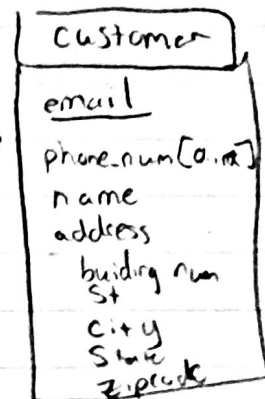 customer
email
phone_num[0..n]
name
address
buiding num
St
city
State
Zipcode